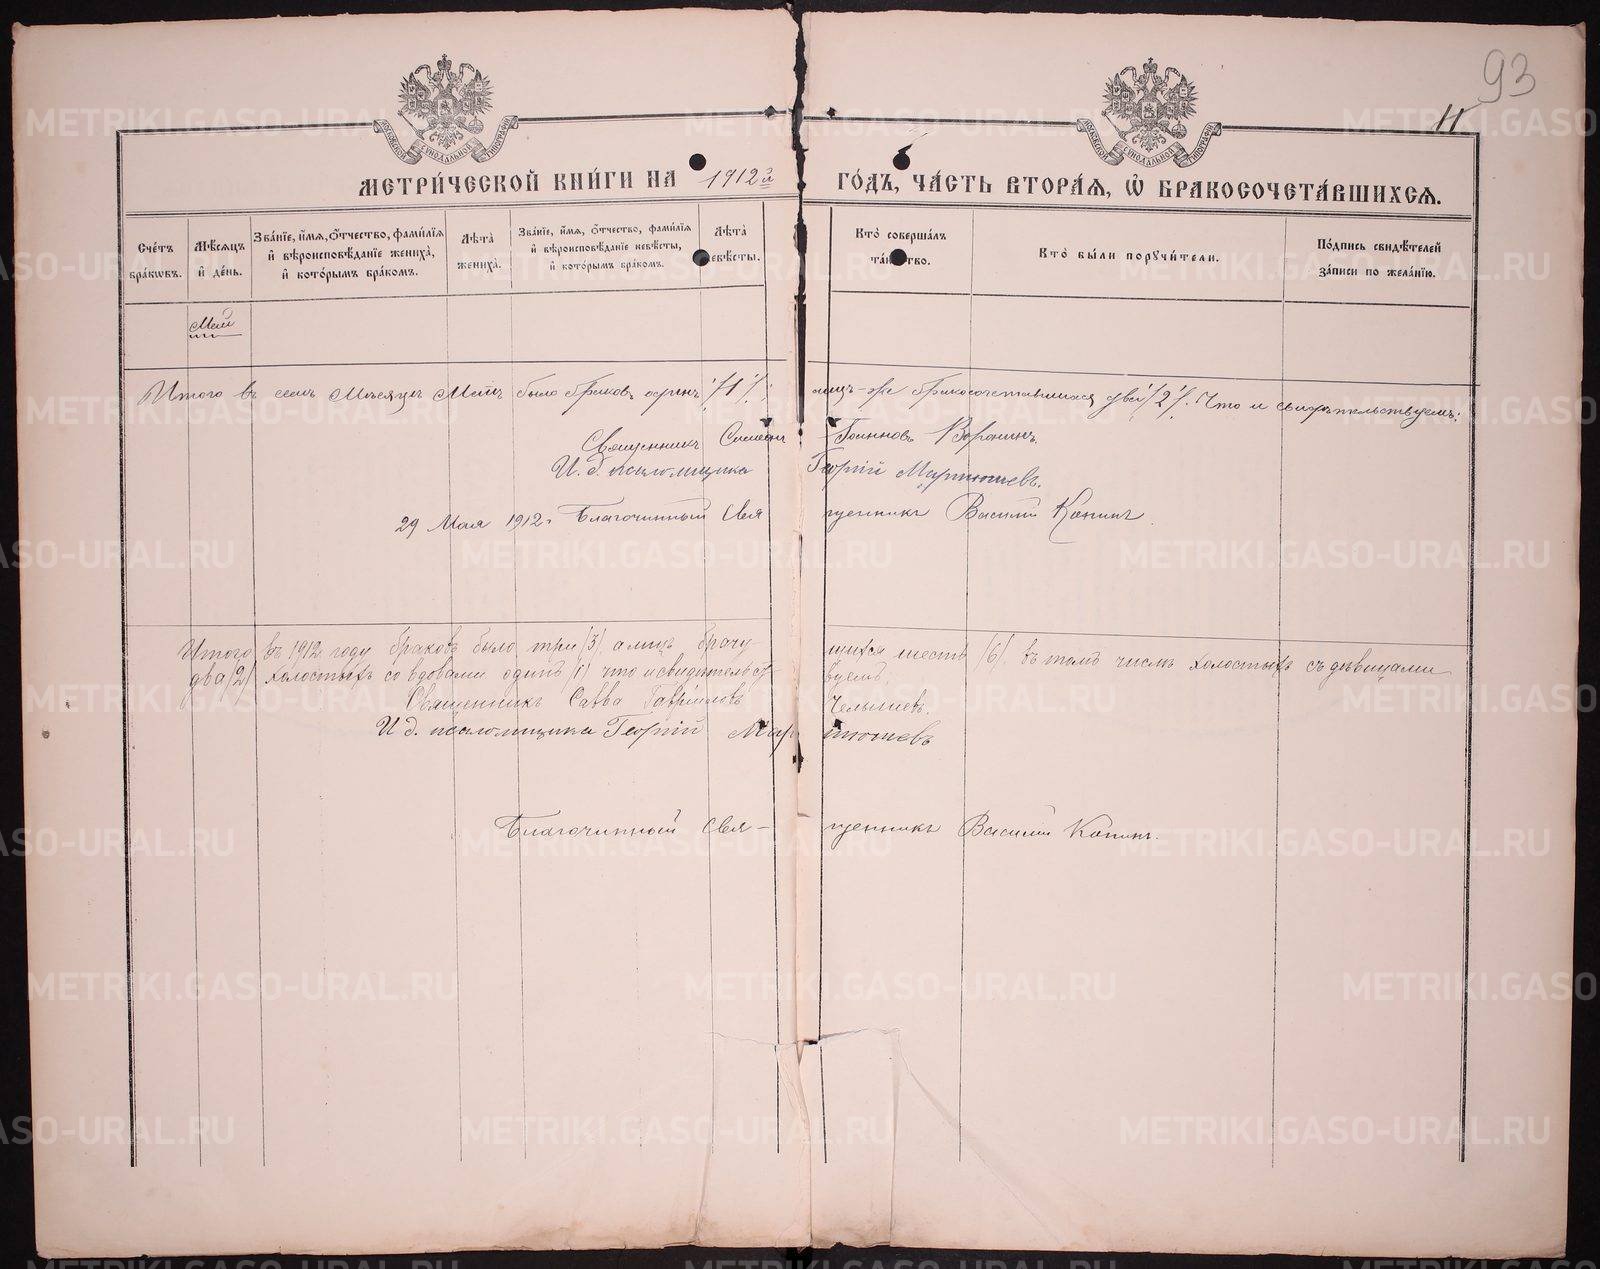 93
11
МЕТРИЧЕСКОЙ КНИГИ НА 1912й ГОДЪ, ЧАСТЬ ВТОРАЯ, Ѡ БРАКОСОЧЕТАВШИХСЯ.
Счетъ браковъ.
Мѣсяцъ и день.
Званіе, имя, отчество, фамилія и вѣроисповѣданіе жениха, и которымъ бракомъ.
Лѣта жениха.
Званіе, имя, отчество, фамилія и вѣроисповѣданіе невѣсты, и которымъ бракомъ.
Лѣта невѣсты.
Кто совершалъ таинство.
Кто были поручители.
Подпись свидѣтелей записи по желанію.
Май
Итого въ семъ Мѣсяцѣ Маѣ было браковъ одинъ /1/; лицъ-же бракосочетавшихся два /2/. Что и свидѣтельствуемъ:
Священникъ Симеонъ Іоанновъ Воронинъ.
И. д. псаломщика Георгій Мартюшевъ.
29 Мая 1912 г. Благочинный Священникъ Василій Копинъ.
Итого въ 1912 году браковъ было три /3/ а лицъ брачущихся шесть /6/. въ томъ числѣ холостыхъ съ дѣвицами
два /2/ холостыхъ со вдовами одинъ /1/ что и свидѣтельствуемъ.
Священникъ Савва Гавріиловъ Челышевъ.
И д. псаломщика Георгій Мартюшевъ
Благочинный Священникъ Василій Копинъ.
METRIKI.GASO-URAL.RU